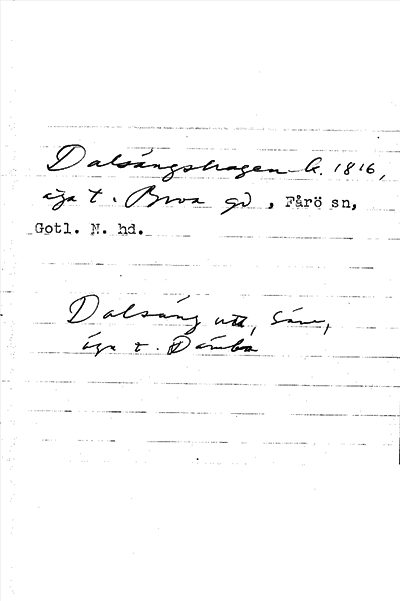 Dalsängshagen k. 1816,
äga t. Broa gd, Fårö sn,
Gotl. N. hd.
Dalsäng utt, 
äga t. Dämba